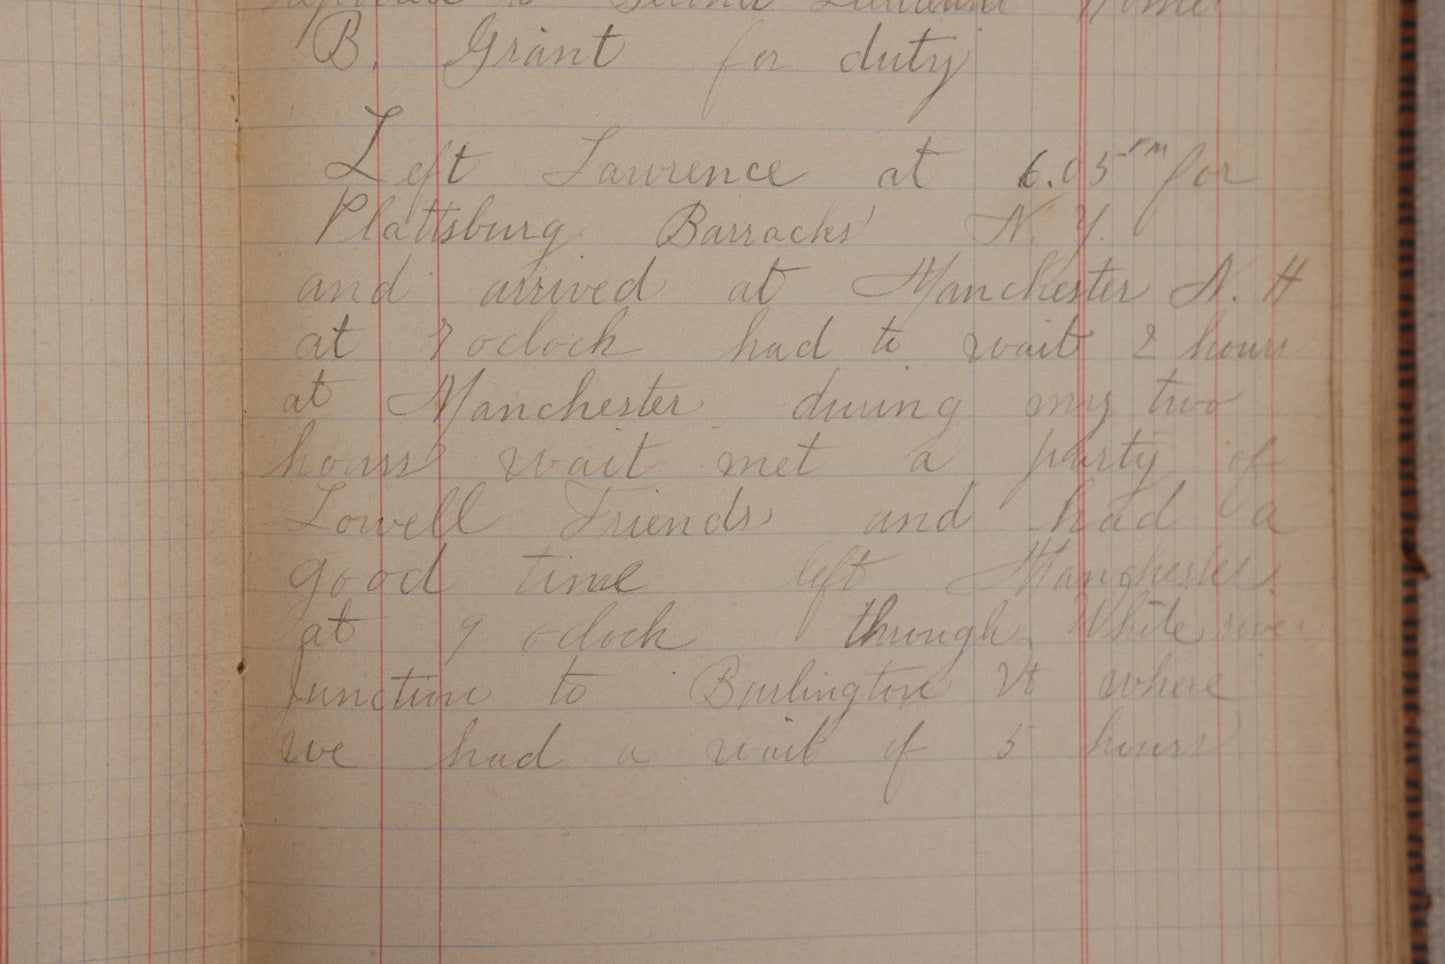 reported to Second Lieutenant Homer
B. Grant for duty
Left Lawrence at 6.05 PM for
Plattsburg Barracks N. Y.
and arrived at Manchester N. H
at 7 oclock had to wait 2 hours
at Manchester during my two
hours wait met a party of
Lowell Friends and had a
good time left Manchester
at 9 oclock through White river
Junction to Burlington Vt where
we had a wait of 5 hours